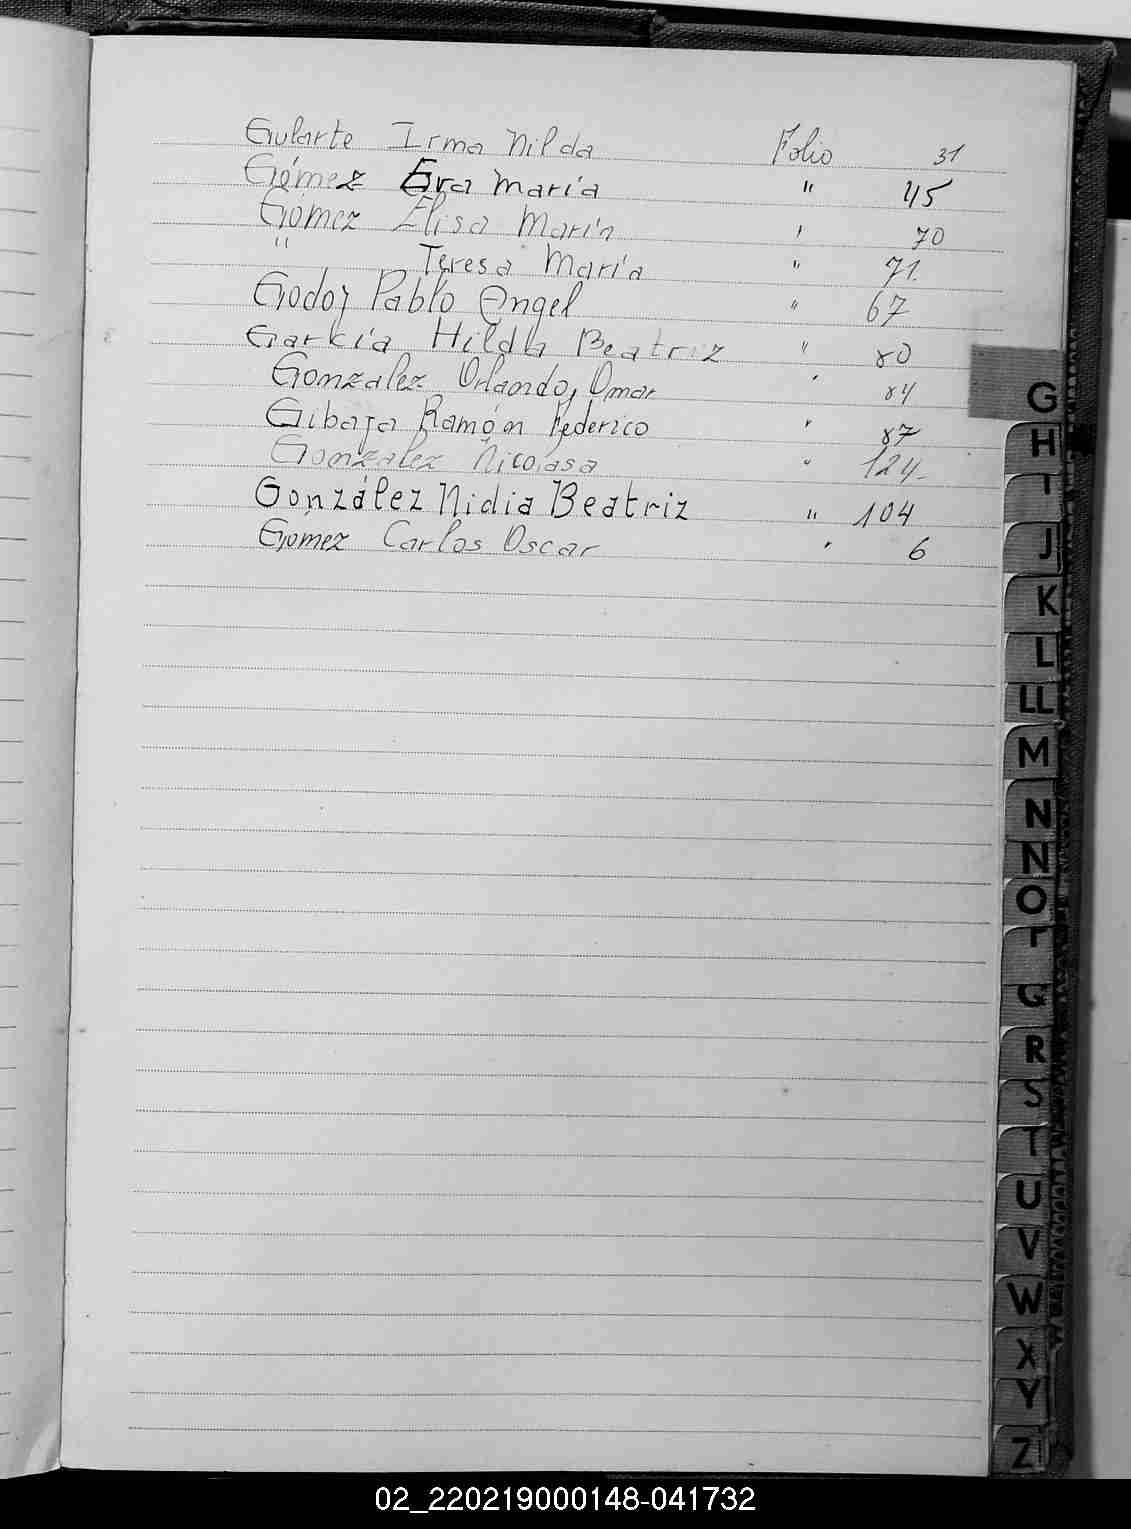 Gularte Irma Nilda Folio 31
Gómez Eva María " 45
Gómez Elisa María " 70
" Teresa María " 71
Godoy Pablo Angel " 67
Garkía Hilda Beatriz " 80
Gonzalez Orlando, Omar " 84
Gibaja Ramón Federico " 87
Gonzalez Nicolasa " 124
González Nidia Beatriz " 104
Gómez Carlos Oscar " 6
G
H
I
J
K
L
LL
M
N
Ñ
O
P
Q
R
S
T
U
V
W
X
Y
Z
02_220219000148-041732